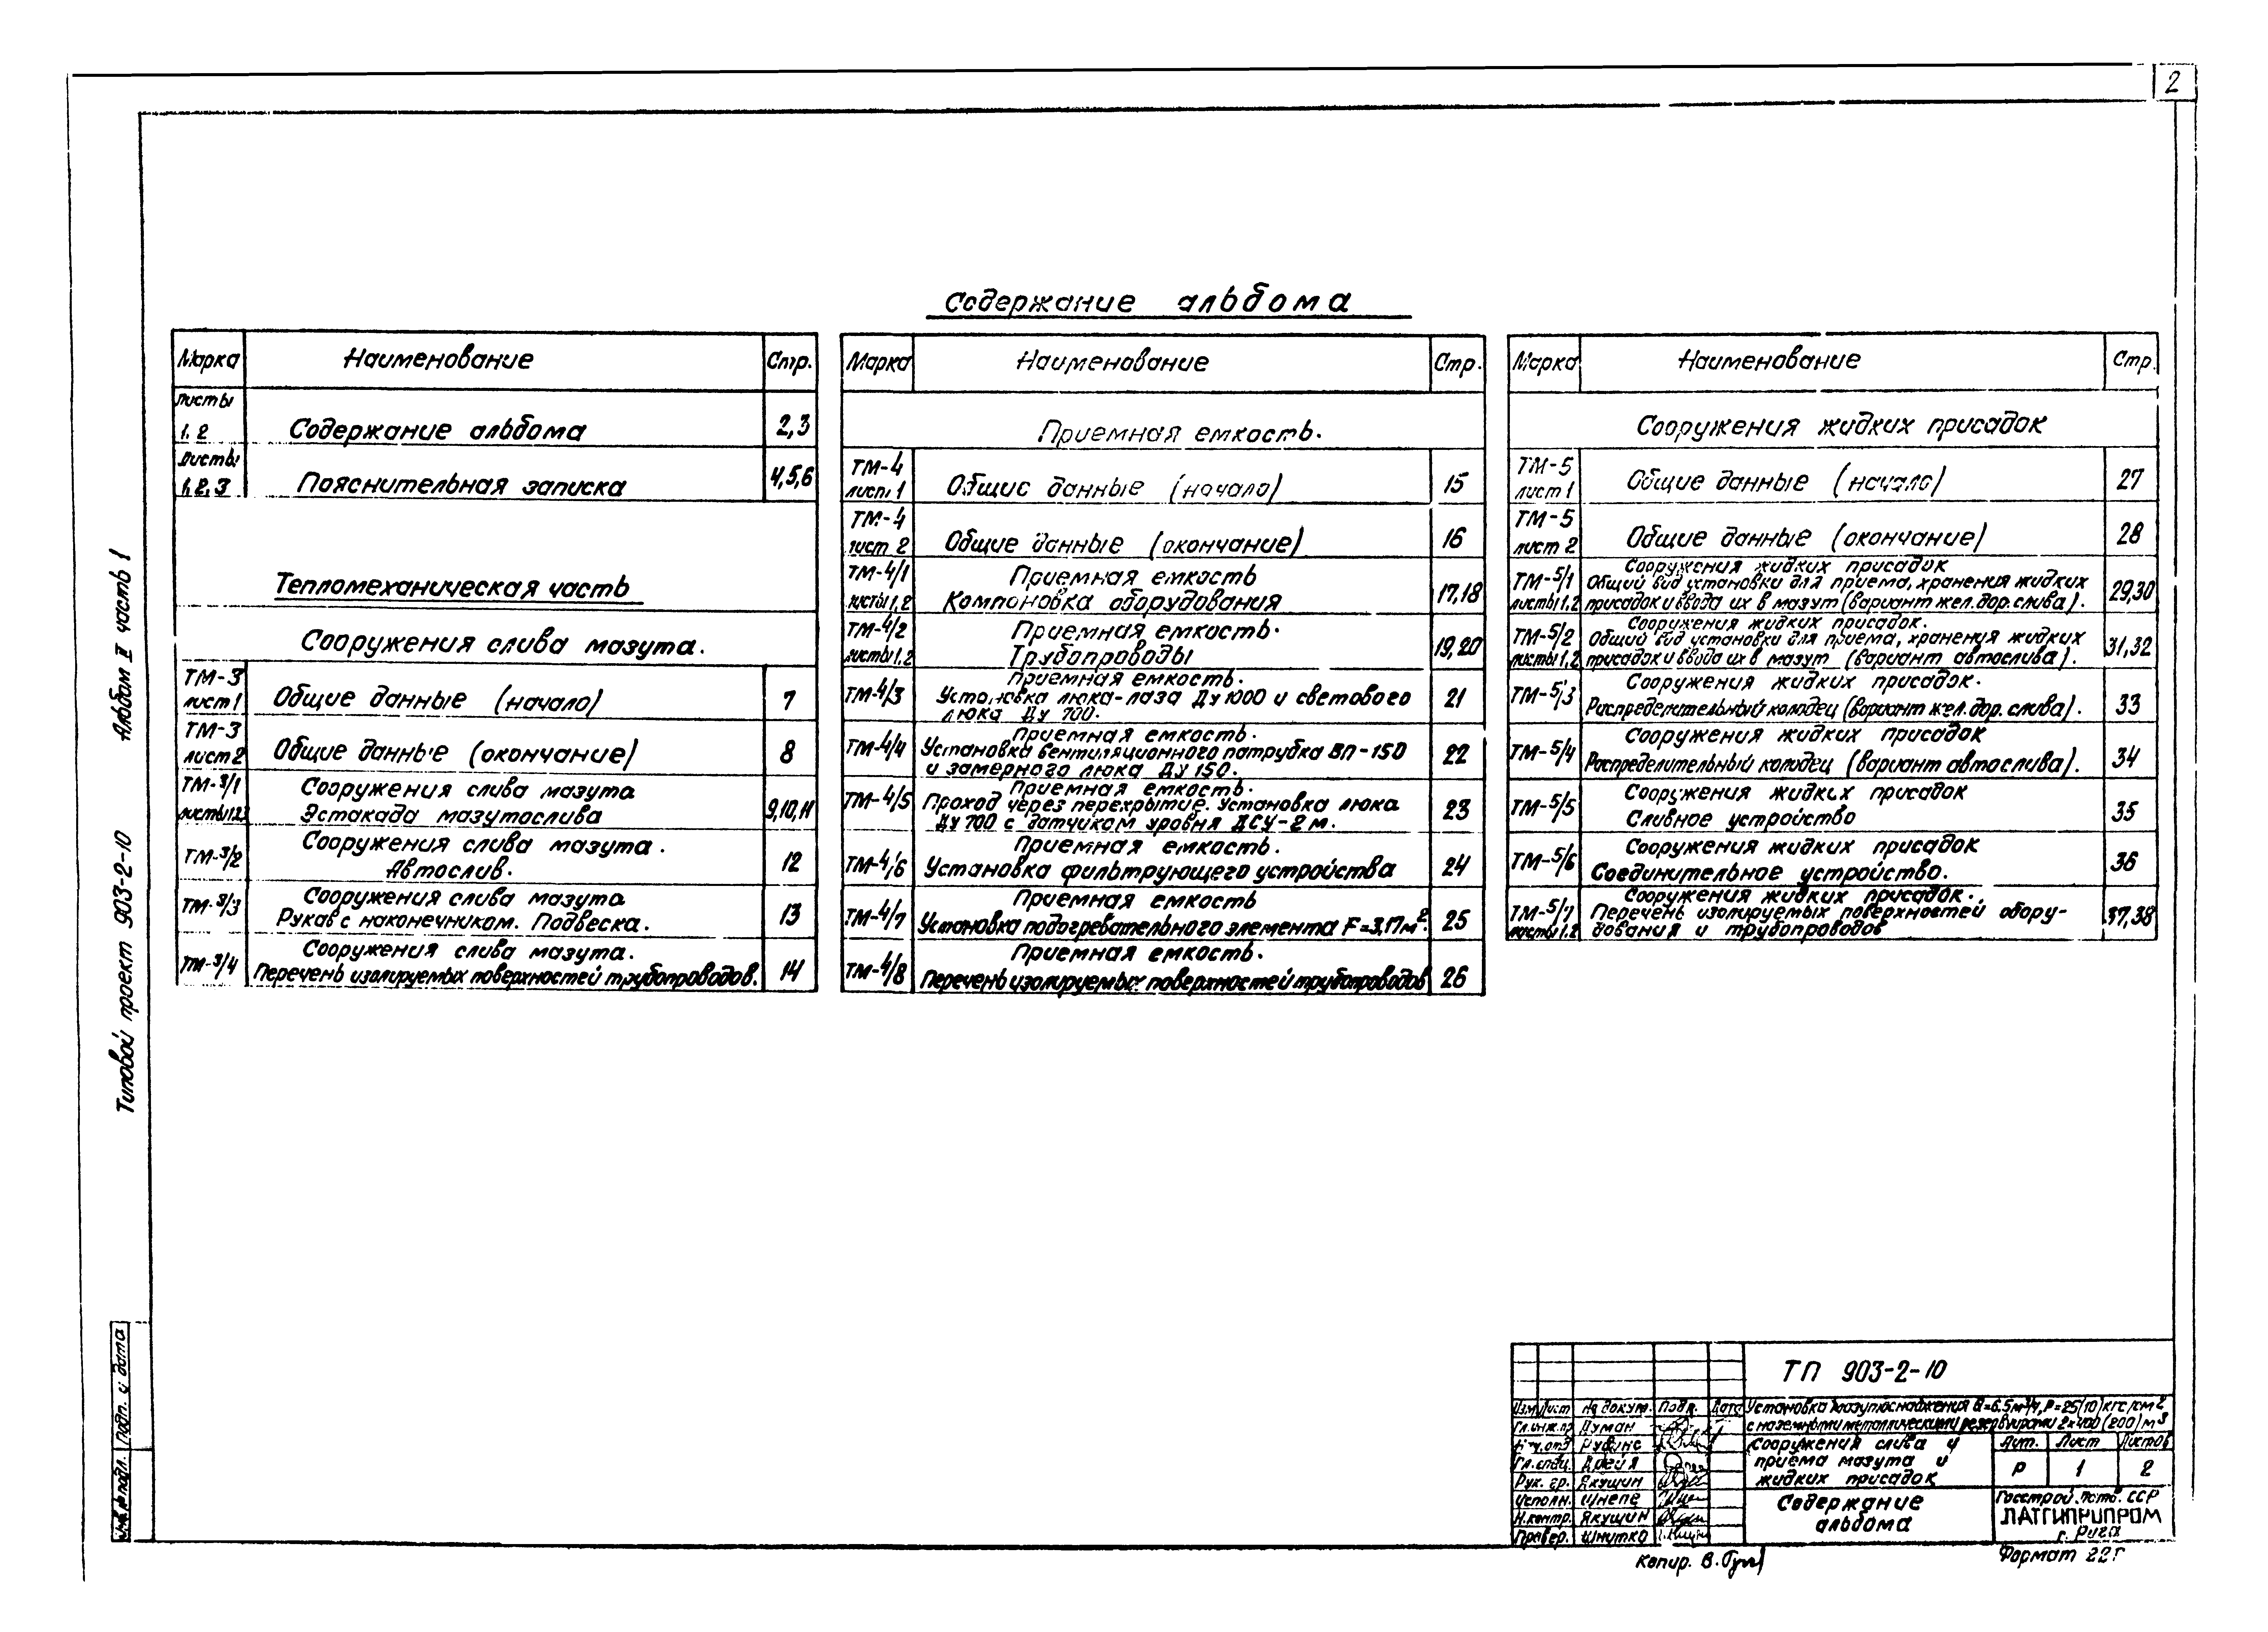 2
Содержание альбома
Марка Наименование Стр.
Листы 1. 2 Содержание альбома 2,3
Листы 1, 2, 3 Пояснительная записка 4,5,6
Тепломеханическая часть
Сооружения слива мазута.
ТМ-3 лист 1 Общие данные (начало) 7
ТМ-3 лист 2 Общие данные (окончание) 8
ТМ-3/1 Сооружения слива мазута
листы 1,2,3 Эстакада мазутослива 9,10,11
Сооружения слива мазута.
ТМ-3/2 Автослив. 12
Сооружения слива мазута
ТМ-3/3 Рукав с наконечником. Подвеска. 13
Сооружения слива мазута.
ТМ-3/4 Перечень изолируемых поверхностей трубопроводов. 14
Марка Наименование Стр.
Приемная емкость.
ТМ-4 лист 1 Общие данные (начало) 15
ТМ-4 лист 2 Общие данные (окончание) 16
ТМ-4/1 Приемная емкость
листы 1,2 Компоновка оборудования 17,18
ТМ-4/2 Приемная емкость.
листы 1,2 Трубопроводы 19,20
Приемная емкость.
ТМ-4/3 Установка люка-лаза Ду 1000 и светового 21
люка Ду 700.
Приемная емкость.
ТМ-4/4 Установка вентиляционного патрубка ВП-150 22
и замерного люка Ду 150.
Приемная емкость.
ТМ-4/5 Проход через перекрытие. Установка люка 23
Ду 700 с датчиком уровня ДСУ-2м.
Приемная емкость.
ТМ-4/6 Установка фильтрующего устройства 24
Приемная емкость
ТМ-4/7 Установка подогревательного элемента F=3,17м². 25
Приемная емкость.
ТМ-4/8 Перечень изолируемых поверхностей трубопроводов 26
Марка Наименование Стр.
Сооружения жидких присадок
ТМ-5 лист 1 Общие данные (начало) 27
ТМ-5 лист 2 Общие данные (окончание) 28
Сооружения жидких присадок
ТМ-5/1 Общий вид установки для приема, хранения жидких 29,30
листы 1,2 присадок и ввода их в мазут (вариант жел.дор.слива).
Сооружения жидких присадок.
ТМ-5/2 Общий вид установки для приема, хранения жидких 31,32
листы 1,2 присадок и ввода их в мазут (вариант автослива).
Сооружения жидких присадок.
ТМ-5/3 Распределительный колодец (вариант жел.дор.слива). 33
Сооружения жидких присадок
ТМ-5/4 Распределительный колодец (вариант автослива). 34
Сооружения жидких присадок
ТМ-5/5 Сливное устройство 35
Сооружения жидких присадок
ТМ-5/6 Соединительное устройство. 36
Сооружения жидких присадок.
ТМ-5/7 Перечень изолируемых поверхностей обору- 37,38
листы 1,2 дования и трубопроводов
Типовой проект 903-2-10 Альбом II часть 1
Инв.№ подл. Подп. и дата
ТП 903-2-10
Изм. Лист № докум. Подп. Дата
Установка мазутоснабжения Q=6.5м³/ч, P=25(10)кгс/см²
с наземными металлическими резервуарами 2×400(200)м³
Гл.инж.пр Думан
Рубинс
Гл.спец. Дрейя
Рук. гр. Якушин
Исполн. Шнепе
Н.контр. Якушин
Провер. Шнитко
Сооружения слива и
приема мазута и
жидких присадок
Лит. Лист Листов
Р 1 2
Содержание
альбома
Госстрой Латв. ССР
ЛАТГИПРОПРОМ
г. Рига
Копир. В.
Формат 22Г